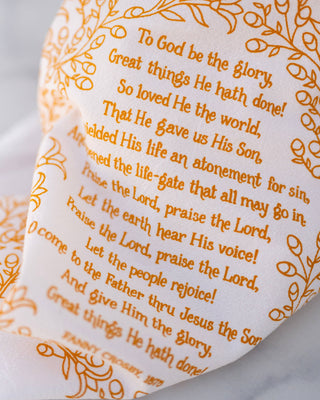 To God be the glory,
Great things He hath done!
So loved He the world,
That He gave us His Son,
ielded His life an atonement for sin,
ened the life-gate that all may go in.
Praise the Lord, praise the Lord,
Let the earth hear His voice!
Praise the Lord, praise the Lord,
Let the people rejoice!
O come to the Father thru Jesus the Son
And give Him the glory,
Great things He hath done!
FANNY CROSBY, 1875